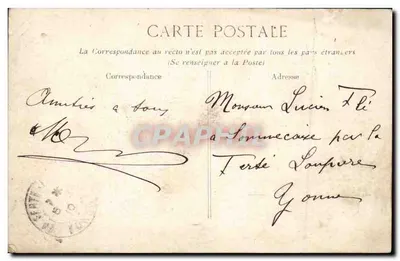 CARTE POSTALE
La Correspondance au recto n'est pas acceptée par tous les pays étrangers
(Se renseigner à la Poste)
Correspondance
Adresse
Amitiés a tous
Monsieur Lucien Flé
a Sommecaise par la
Ferté Loupiere
Yonne
CPARAMA